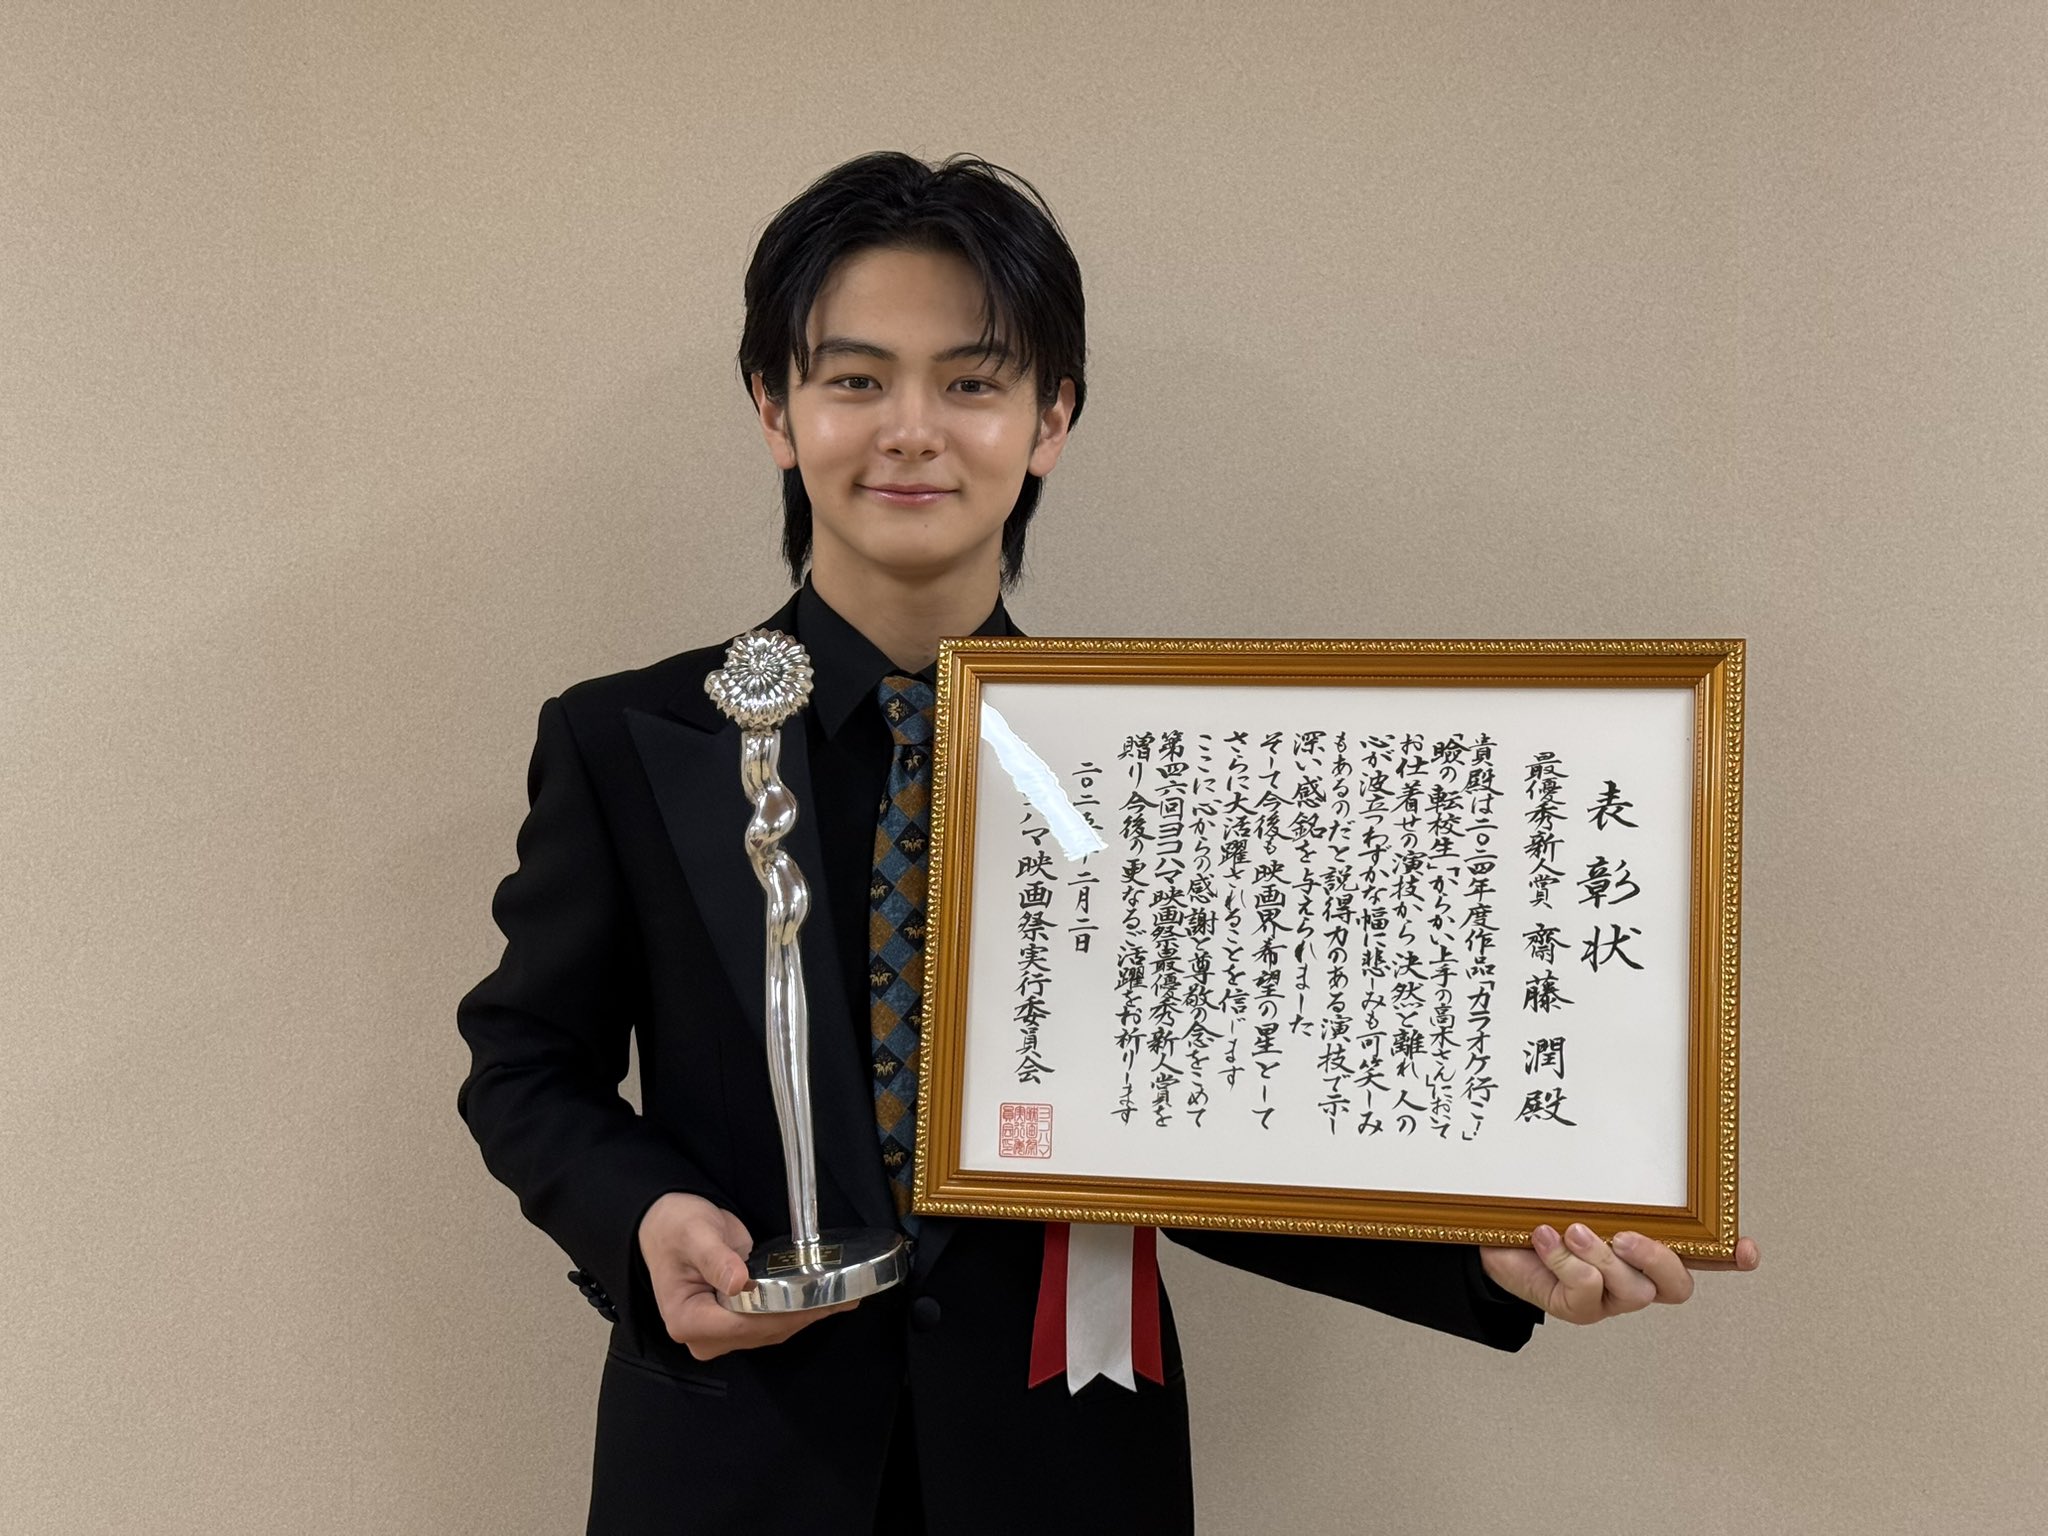 表彰状
最優秀新人賞 齋藤 潤 殿
貴殿は二〇二四年度作品「カラオケ行こ!」
「瞼の転校生」「からかい上手の高木さん」において
お仕着せの演技から決然と離れ 人の
心が波立つわずかな幅に悲しみも可笑しみ
もあるのだと説得力のある演技で示し
深い感銘を与えられました
そして今後も映画界希望の星として
さらに大活躍されることを信じます
ここに心からの感謝と尊敬の念をこめて
第四六回ヨコハマ映画祭最優秀新人賞を
贈り今後の更なるご活躍をお祈りします
二〇二五年二月二日
ハマ映画祭実行委員会